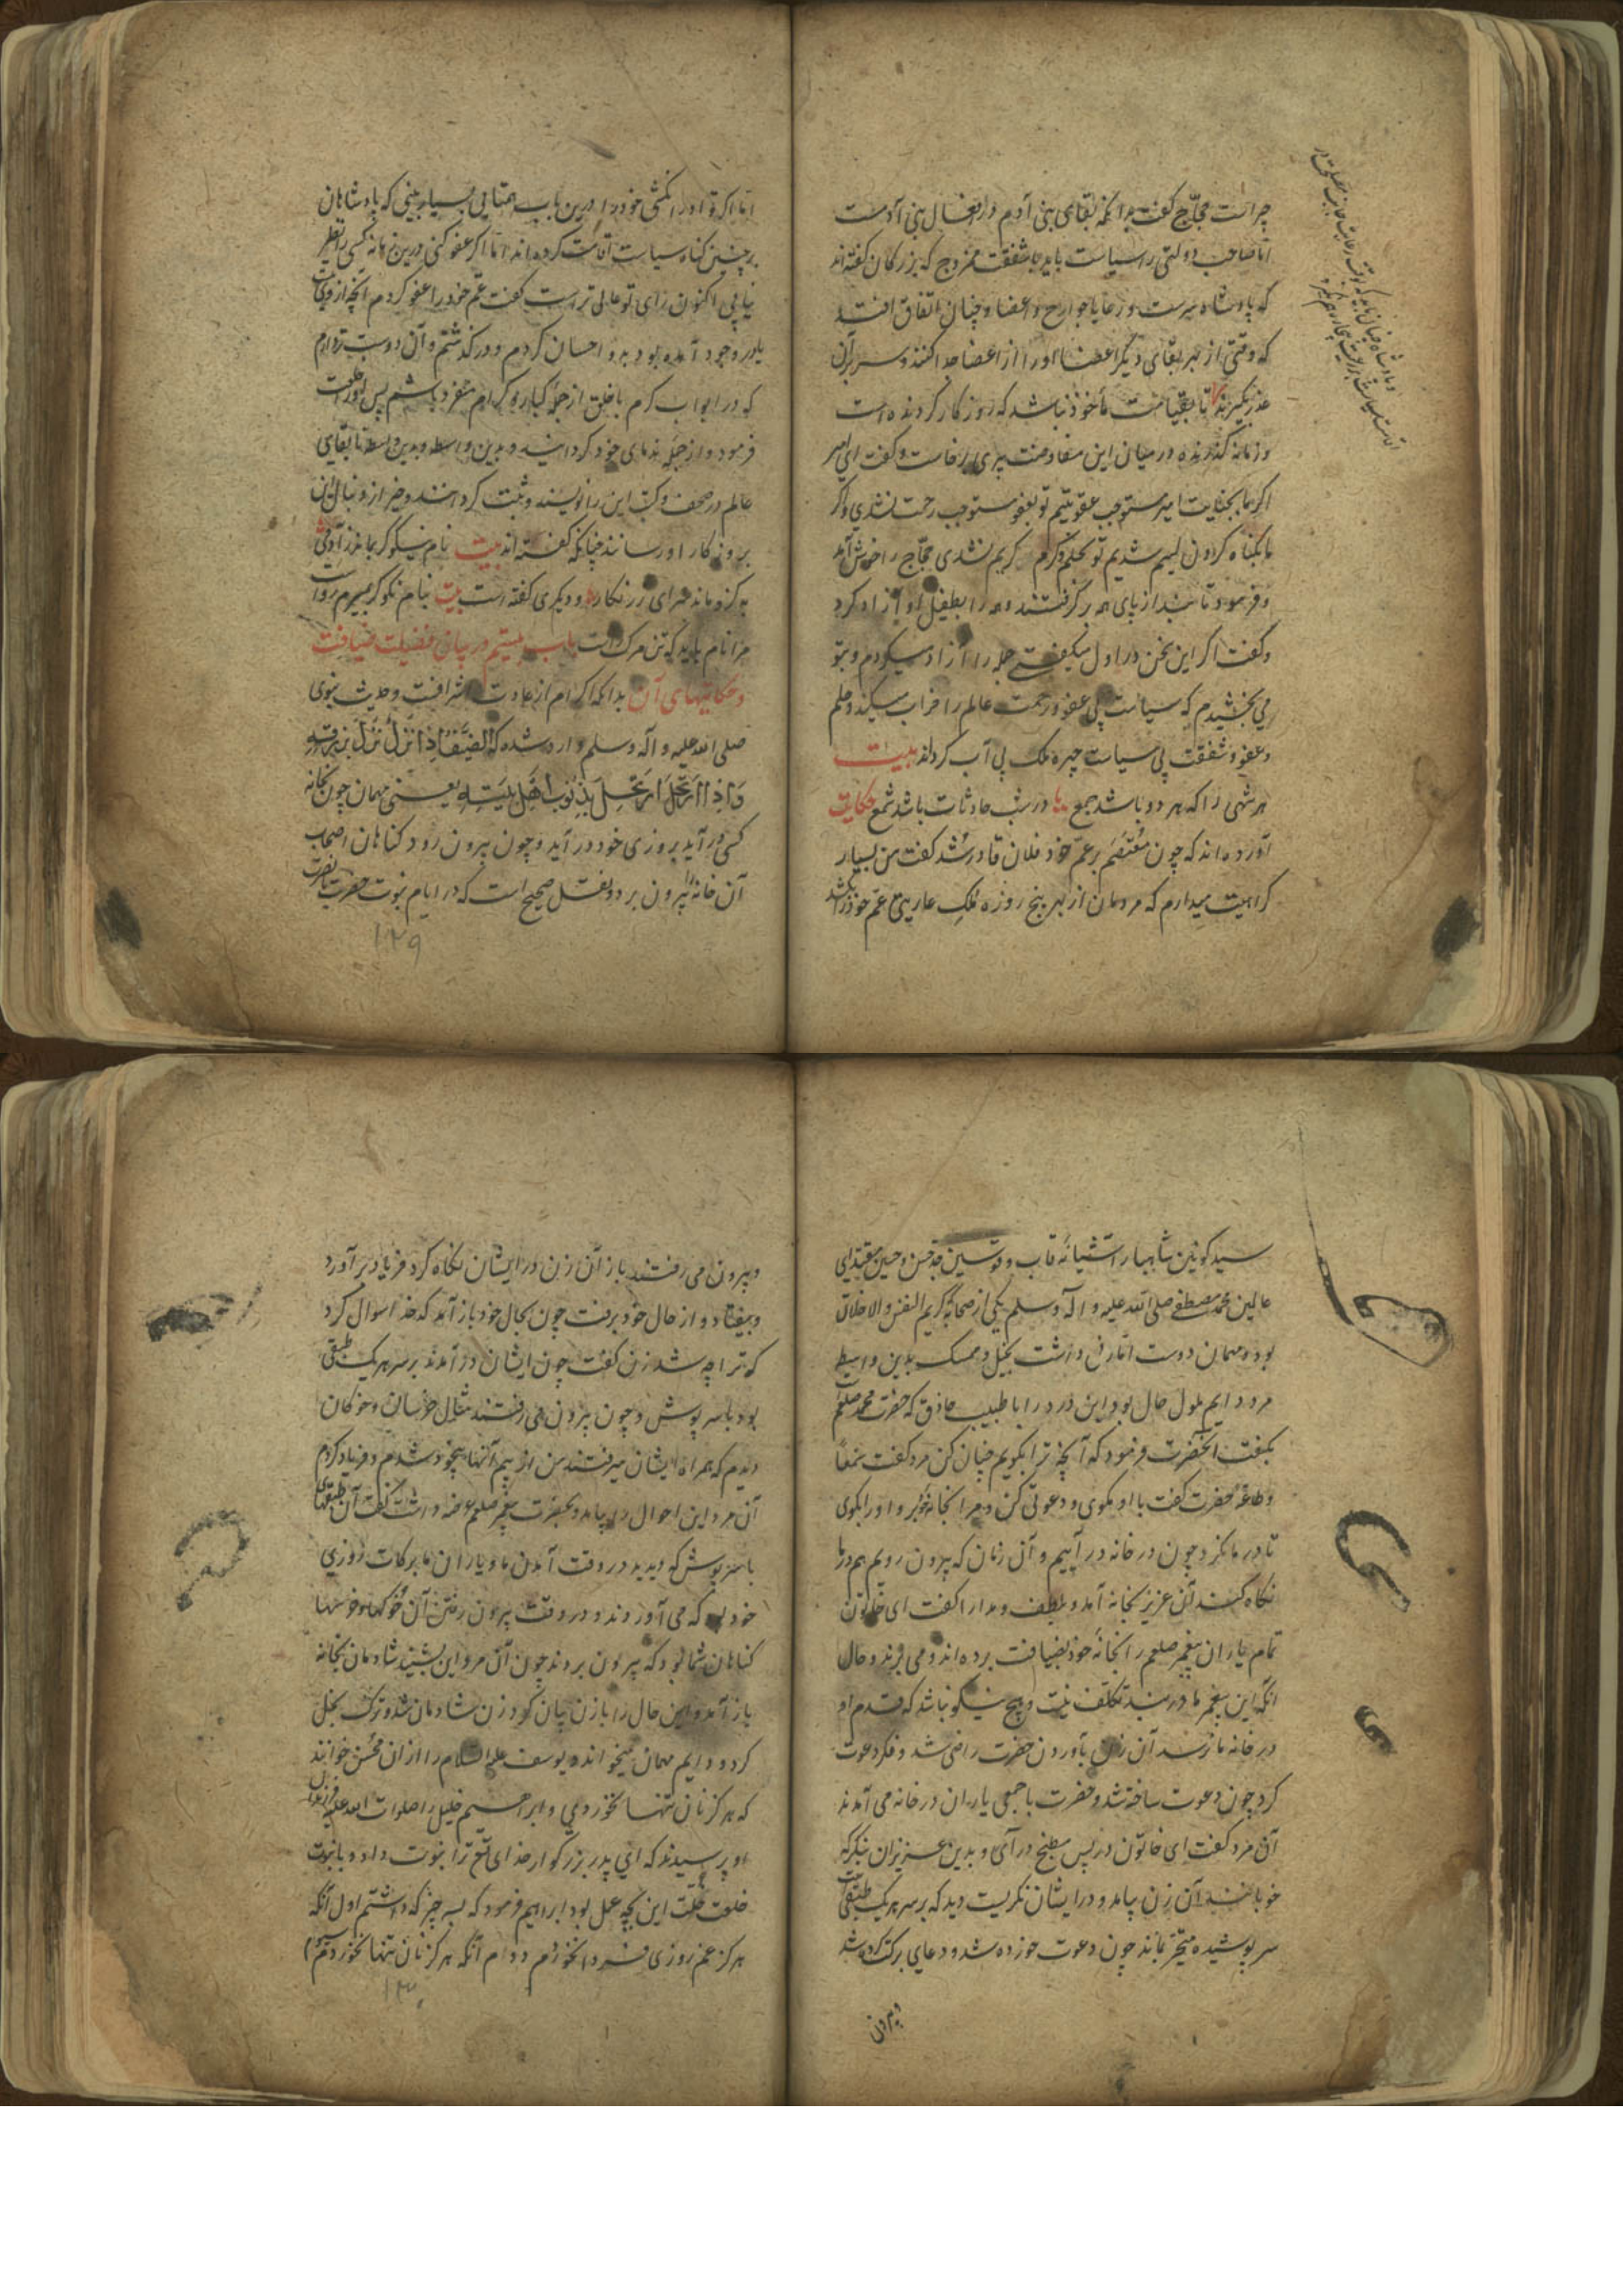 چراست حجاج گفت بدانکه بقای بنی آدم در افعال بنی آدمست
اما صاحب دولتی را سیاست باید با شفقت ممزوج که بزرکان گفته‌اند
که پادشاه سرست و رعایا جوارح و اعضا و چنان اتفاق افتد
که وقتی از بهر بقای دیگر اعضا او را از اعضا جدا کنند و سر برآن
عذر نگیرند تا بقیامت مأخوذ نباشد که روز کار کردنده است
و زمانه گذرنده در میان این مفاوضت پیری برخاست و گفت ای امیر
اگر ما بجنایت امیر مستوجب عقوبتیم تو بعفو مستوجب رحمت نشدی و اگر
ما بگناه کردن لئیم شدیم تو بحلم و کرم کریم نشدی حجاج را خوش آمد
و فرمود تا بند از پای همه بر گرفتند و همه را بطفیل او آزاد کرد
و گفت اگر این سخن در اول میگفتی جمله را آزاد میکردم و بتو
می بخشیدم که سیاست بی عفو و رحمت عالم را خراب میکند و حلم
و عفو و شفقت بی سیاست چهره ملک بی آب گرداند بیت
هر شهی را که هر دو باشد جمع در شب حادثات باشد شمع حکایت
آورده‌اند که چون معتصم بر عم خود فلان قادر شد گفت من بسیار
کراهیت میدارم که مردمان از بهر پنج روزه ملک عاریتی عم خود را بکشد
اما اگر تو او را نکشی خود را درین باب همتایی بسیار بینی که پادشاهان
بر چنین گناه سیاست اقامت کرده‌اند اما اگر عفو کنی درین زمانه کسی را نظیر
نیابی اکنون رای تو عالی تر است گفت عم خود را عفو کردم آنچه از وی
در وجود آمده بود بدو احسان کردم و درگذشتم و آن دوست تر دارم
که در ابواب کرم با خلق از جمله کبار و کرام منفرد باشم پس او را خلعت
فرمود و از جمله ندمای خود گردانید و بدین واسطه تا بقای
عالم در صحف و کتب این را نویسند و ثبت گردانند و خیر از دنبال این
بروز کار او رسانند چنانکه گفته اند بیت نام نیکو گر بماند ز آدمی
به کزو ماند سرای زرنکار و دیگری گفته است بیت بنام نکو گر بمیرم رواست
مرا نام باید که تن مرگ راست باب بیستم در بیان فضیلت ضیافت
و حکایتهای آن بدانکه اکرام از عادت اشرافست و حدیث نبوی
صلی الله علیه و آله و سلم وارد شده که الضیف اذا نزل نزل برزقه
و اذا ارتحل ارتحل بذنوب اهل بیته یعنی مهمان چون بخانه
کسی در آید بروزی خود در آید و چون بیرون رود گناهان اصحاب
آن خانه را بیرون برد و بنقل صحیح است که در ایام نبوت حضرت
۱۲۹
سید کونین شاهباز آشیانه قاب قوسین جد حسن و حسین مقتدای
عالمین محمد مصطفی صلی الله علیه و آله و سلم یکی از صحابه کریم النفس و الاخلاق
بود و مهمان دوست اما زنی داشت بخیل و ممسک بدین واسطه
مرد دایم ملول حال بود این درد را با طبیب حاذق که حضرت محمد صلعم
بگفت آنحضرت فرمود که آنچه ترا بگویم چنان کن مرد گفت سمعا
و طاعة حضرت گفت با او بگوی و دعوتی کن و مرا بخانه بر و او را بگوی
تا در ما نگرد چون در خانه در آییم و آن زمان که بیرون رویم هم در ما
نگاه کند آن عزیز بخانه آمد و بلطف و مدارا گفت ای خاتون
تمام یاران پیغمبر صلعم را بخانه خود بضیافت برده‌اند و می برند و حال
آنکه این پیغمبر ما در بند تکلف نیست و هیچ نیکو نباشد که قدم او
در خانه ما نرسد آن زن بآوردن حضرت راضی شد و فکر دعوت
کرد چون دعوت ساخته شد و حضرت با جمعی یاران در خانه می آمدند
آن مرد گفت ای خاتون در پس مطبخ در آی و بدین عزیزان بنگر که
آن زن بیامد و در ایشان نگریست دید که بر سر هر یک طبقی
سر پوشیده متحیر بماند چون دعوت خورده شد و دعای برکت کرده شد
و بیرون
و بیرون می رفتند باز آن زن در ایشان نگاه کرد فریاد بر آورد
و بیفتاد و از حال خود برفت چون بحال خود باز آمد کدخدا سوال کرد
که ترا چه شد زن گفت چون ایشان در آمدند بر سر هر یک طبقی
بود با سر پوش و چون بیرون می رفتند مثال خرسان و خوکان
دیدم که همراه ایشان میرفتند من از بیم آنها بیخود شدم و فریاد کردم
آن مرد این احوال را بیامد و بحضرت پیغمبر صلعم عرضه داشت گفت آن طبقهای
با سر پوش که دیدید در وقت آمدن ما و یاران ما برکات روزی
خود بود که می آوردند و در وقت بیرون رفتن آن خوکها و خرسها
گناهان شما بود که بیرون بردند چون آن مرد این بشنید شادمان بخانه
باز آمد و این حال را با زن بیان کرد زن شادمان شد و ترک بخل
کرد و دایم مهمان میخوانده یوسف علیه السلام را از ان محسن خوانند
که هرگز نان تنها نخوردی و ابراهیم خلیل را صلوات الله علیه فرزندان
او پرسیدند که ای پدر بزرگوار خدای تع ترا نبوت داد و با نبوت
خلعت خلت این بچه عمل بود ابراهیم فرمود که بسه چیز که داشتم اول آنکه
هرگز غم روزی فردا نخوردم دوم آنکه هرگز نان تنها نخوردم
۱۳۰